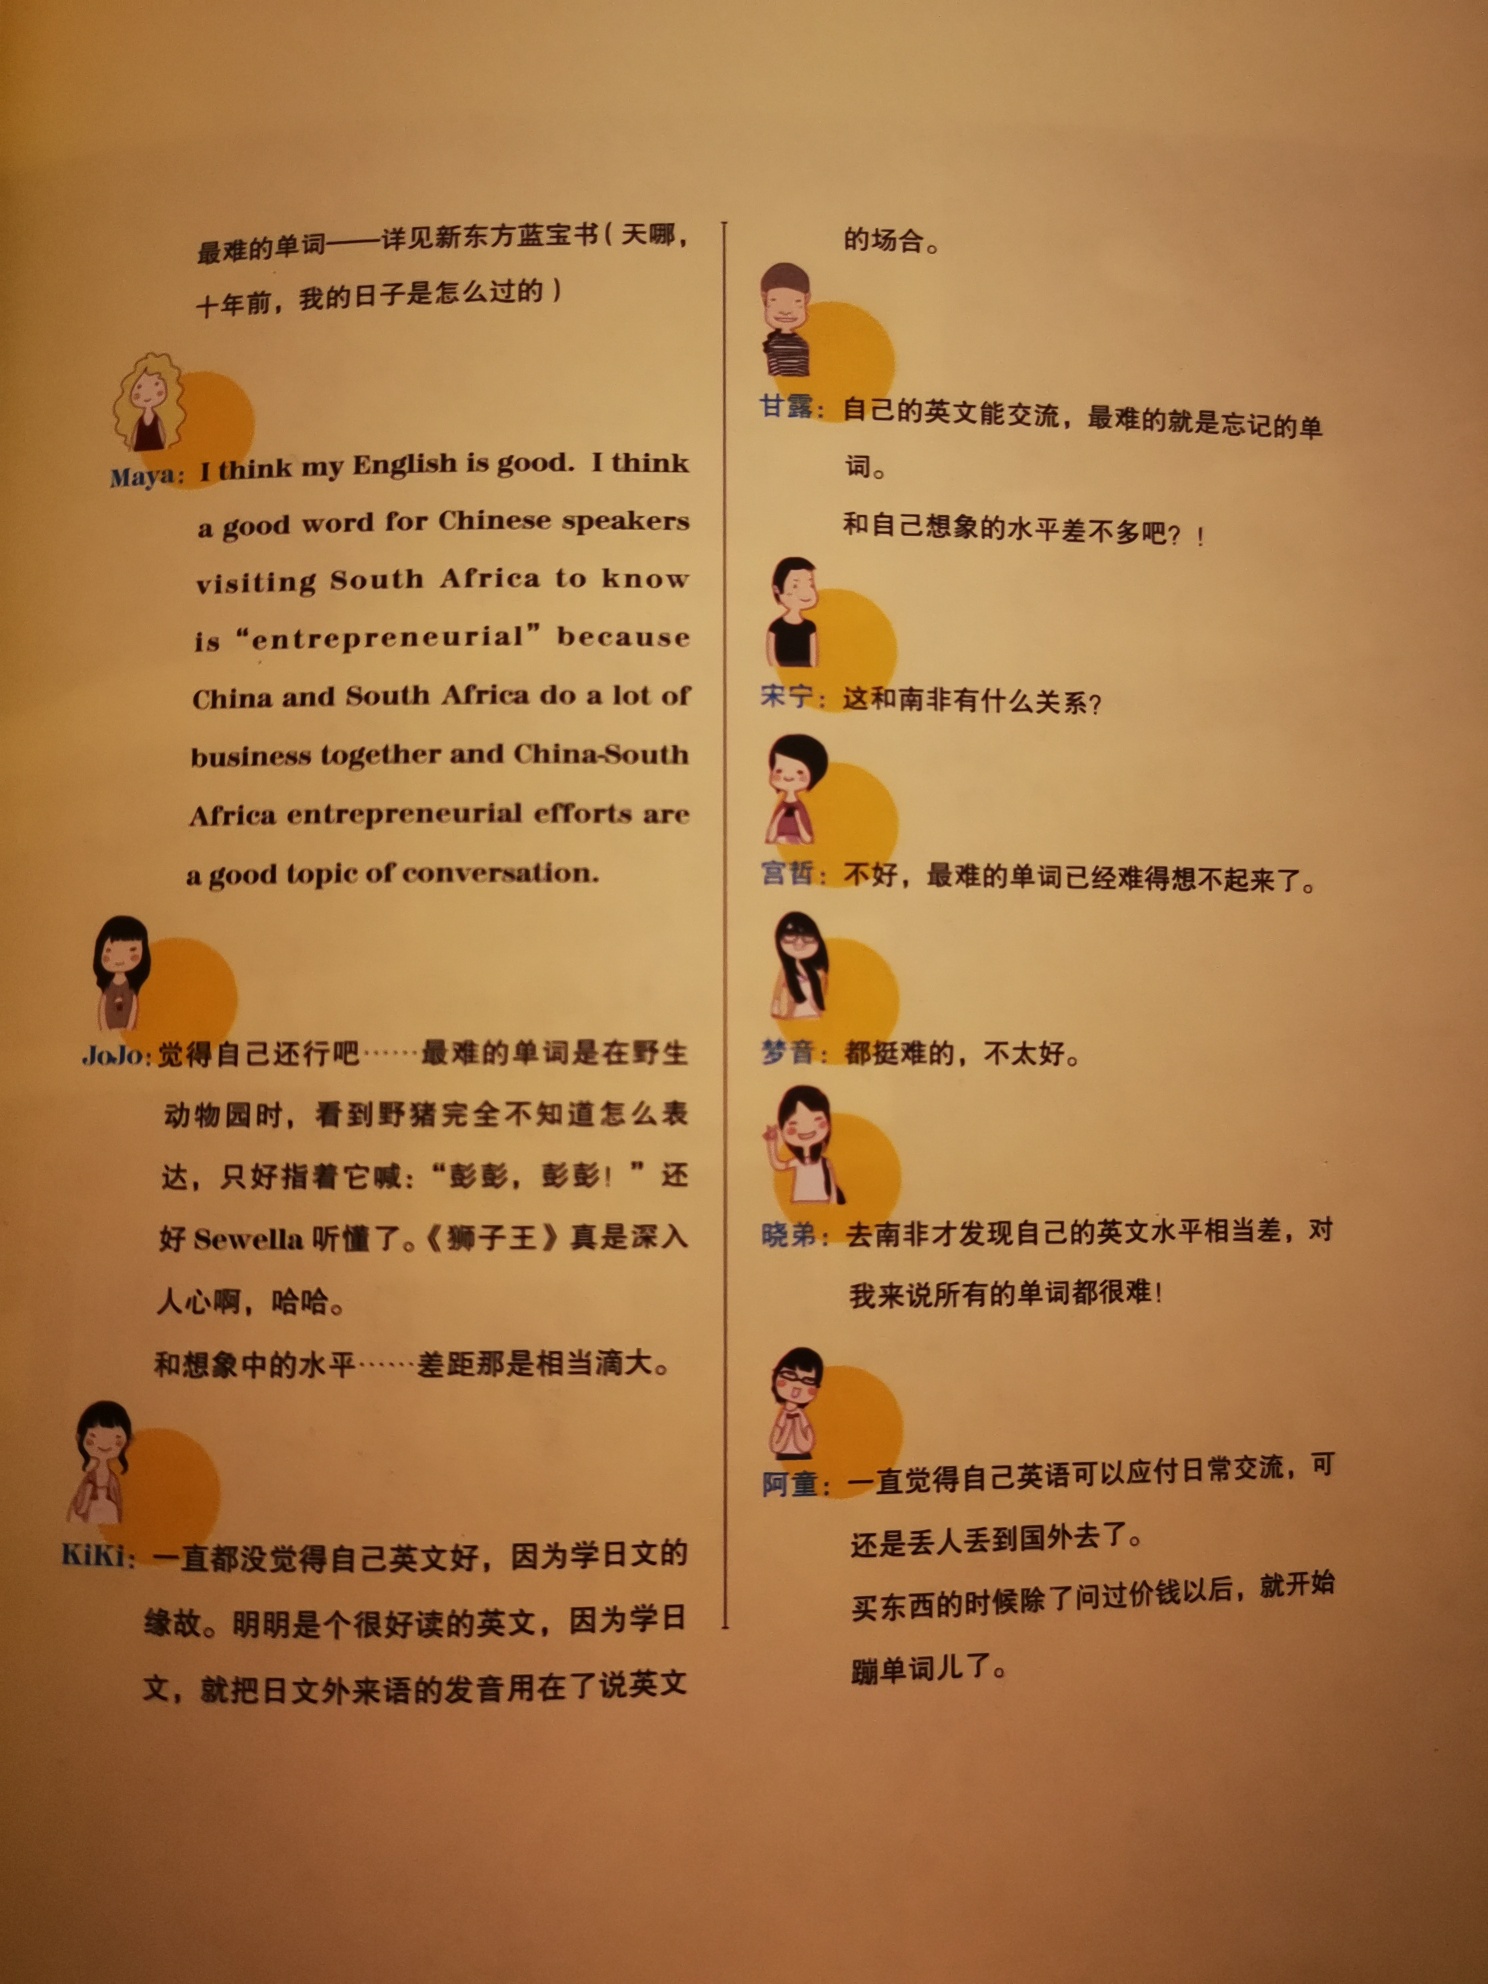 最难的单词——详见新东方蓝宝书(天哪,
十年前,我的日子是怎么过的)
Maya: I think my English is good. I think
a good word for Chinese speakers
visiting South Africa to know
is “entrepreneurial” because
China and South Africa do a lot of
business together and China-South
Africa entrepreneurial efforts are
a good topic of conversation.
JoJo:觉得自己还行吧……最难的单词是在野生
动物园时,看到野猪完全不知道怎么表
达,只好指着它喊:“彭彭,彭彭!”还
好 Sewella 听懂了。《狮子王》真是深入
人心啊,哈哈。
和想象中的水平……差距那是相当滴大。
KiKi:一直都没觉得自己英文好,因为学日文的
缘故。明明是个很好读的英文,因为学日
文,就把日文外来语的发音用在了说英文
的场合。
甘露:自己的英文能交流,最难的就是忘记的单
词。
和自己想象的水平差不多吧?!
宋宁:这和南非有什么关系?
宫哲:不好,最难的单词已经难得想不起来了。
梦音:都挺难的,不太好。
晓弟:去南非才发现自己的英文水平相当差,对
我来说所有的单词都很难!
阿童:一直觉得自己英语可以应付日常交流,可
还是丢人丢到国外去了。
买东西的时候除了问过价钱以后,就开始
蹦单词儿了。